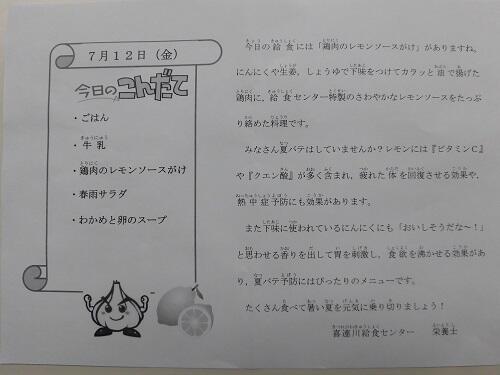 7月12日（金）
今日のこんだて
・ごはん
・牛乳
・鶏肉のレモンソースがけ
・春雨サラダ
・わかめと卵のスープ
今日の給食には「鶏肉のレモンソースがけ」がありますね。
にんにくや生姜、しょうゆで下味をつけてカラッと油で揚げた
鶏肉に、給食センター特製のさわやかなレモンソースをたっぷ
り絡めた料理です。
みなさん夏バテはしていませんか？レモンには『ビタミンC』
や『クエン酸』が多く含まれ、疲れた体を回復させる効果や、
熱中症予防にも効果があります。
また下味に使われているにんにくにも「おいしそうだな～！」
と思わせる香りを出して胃を刺激し、食欲を沸かせる効果があ
り、夏バテ予防にはぴったりのメニューです。
たくさん食べて暑い夏を元気に乗り切りましょう！
喜連川給食センター　栄養士